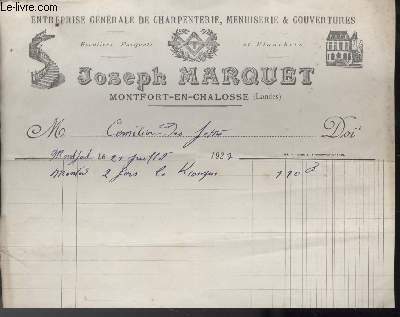 le-livre.com
ENTREPRISE GÉNÉRALE DE CHARPENTERIE, MENUISERIE & COUVERTURES
Escaliers Parquets et Planchers
Joseph MARQUET
MONTFORT-EN-CHALOSSE (Landes)
M Comité des fêtes Doit
Montfort le 21 192
Monter 2 fois le Kiosque